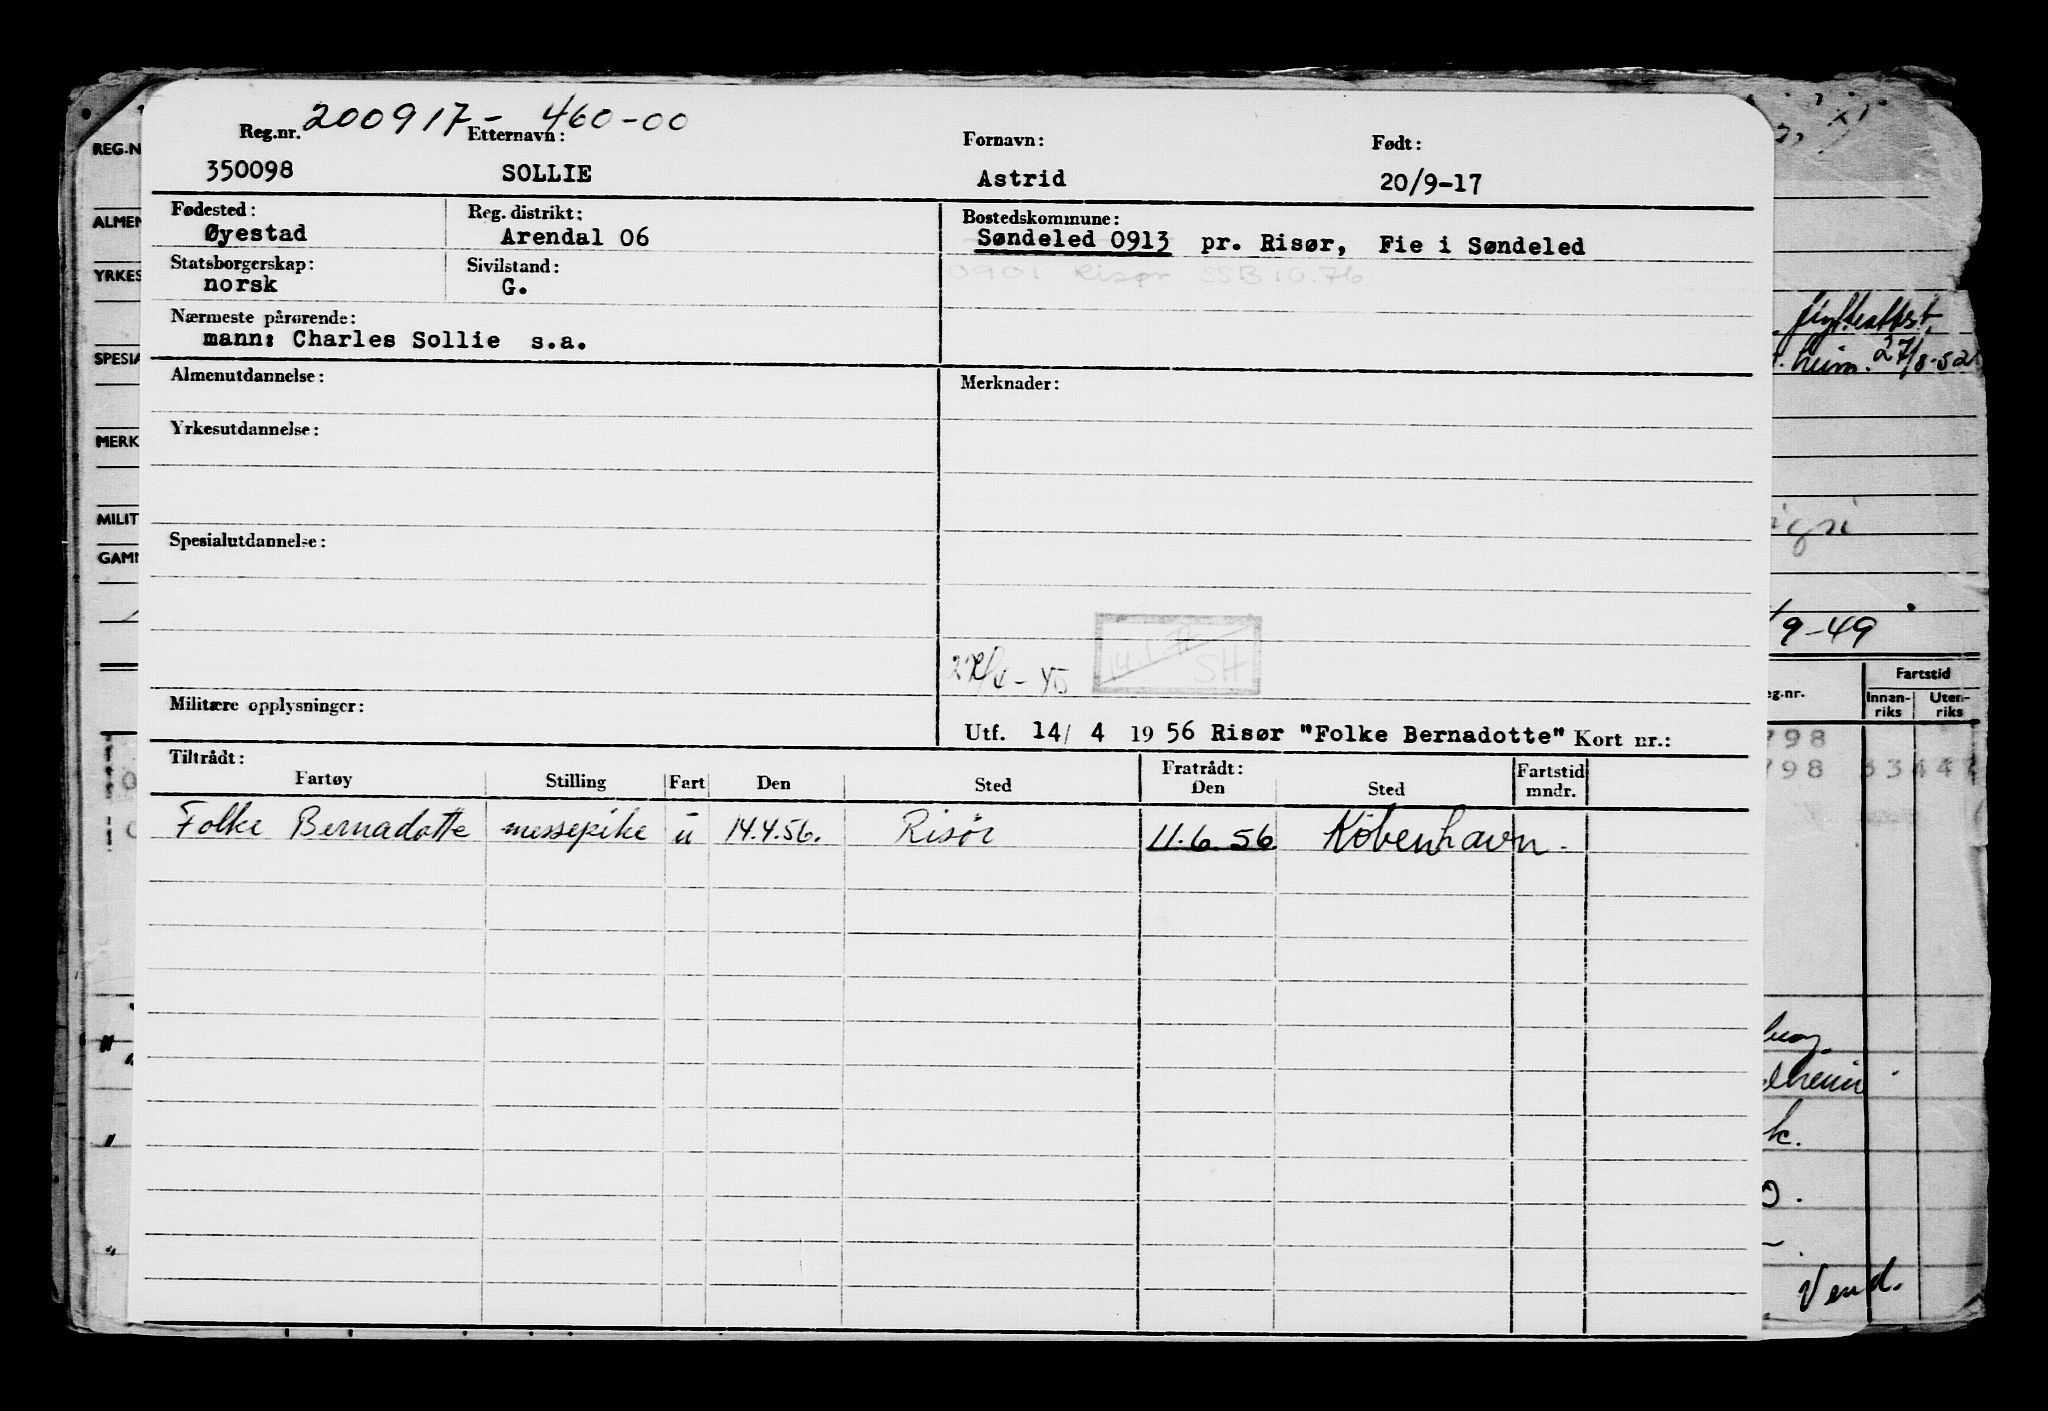 200917- 460-00
Reg.nr. Etternavn: Fornavn: Født:
350098 SOLLIE Astrid 20/9-17
Fødested: Reg. distrikt: Bostedskommune:
Øyestad Arendal 06 Søndeled 0913 pr. Risør, Fie i Søndeled
Statsborgerskap: Sivilstand: 0901 Risør SSB 10.76
norsk G.
Nærmeste pårørende:
mann: Charles Sollie s.a.
Almenutdannelse: Merknader:
Yrkesutdannelse:
Spesialutdannelse:
SH
Militære opplysninger:
Utf. 14/ 4 19 56 Risør "Folke Bernadotte" Kort nr.:
Tiltrådt: Fratrådt: Fartstid
Fartøy Stilling Fart Den Sted Den Sted mndr.
Folke Bernadotte messepike u 14.4.56. Risör 11.6.56 København.
REG.N
ALMEN
YRKES
SPESIA
MERK
MILIT
GAMN
flytteattst,
heim. 27/8-52
/9-49
Fartstid
eg.nr. Innan-riks Uten-riks
798
798 334 4
Vend.